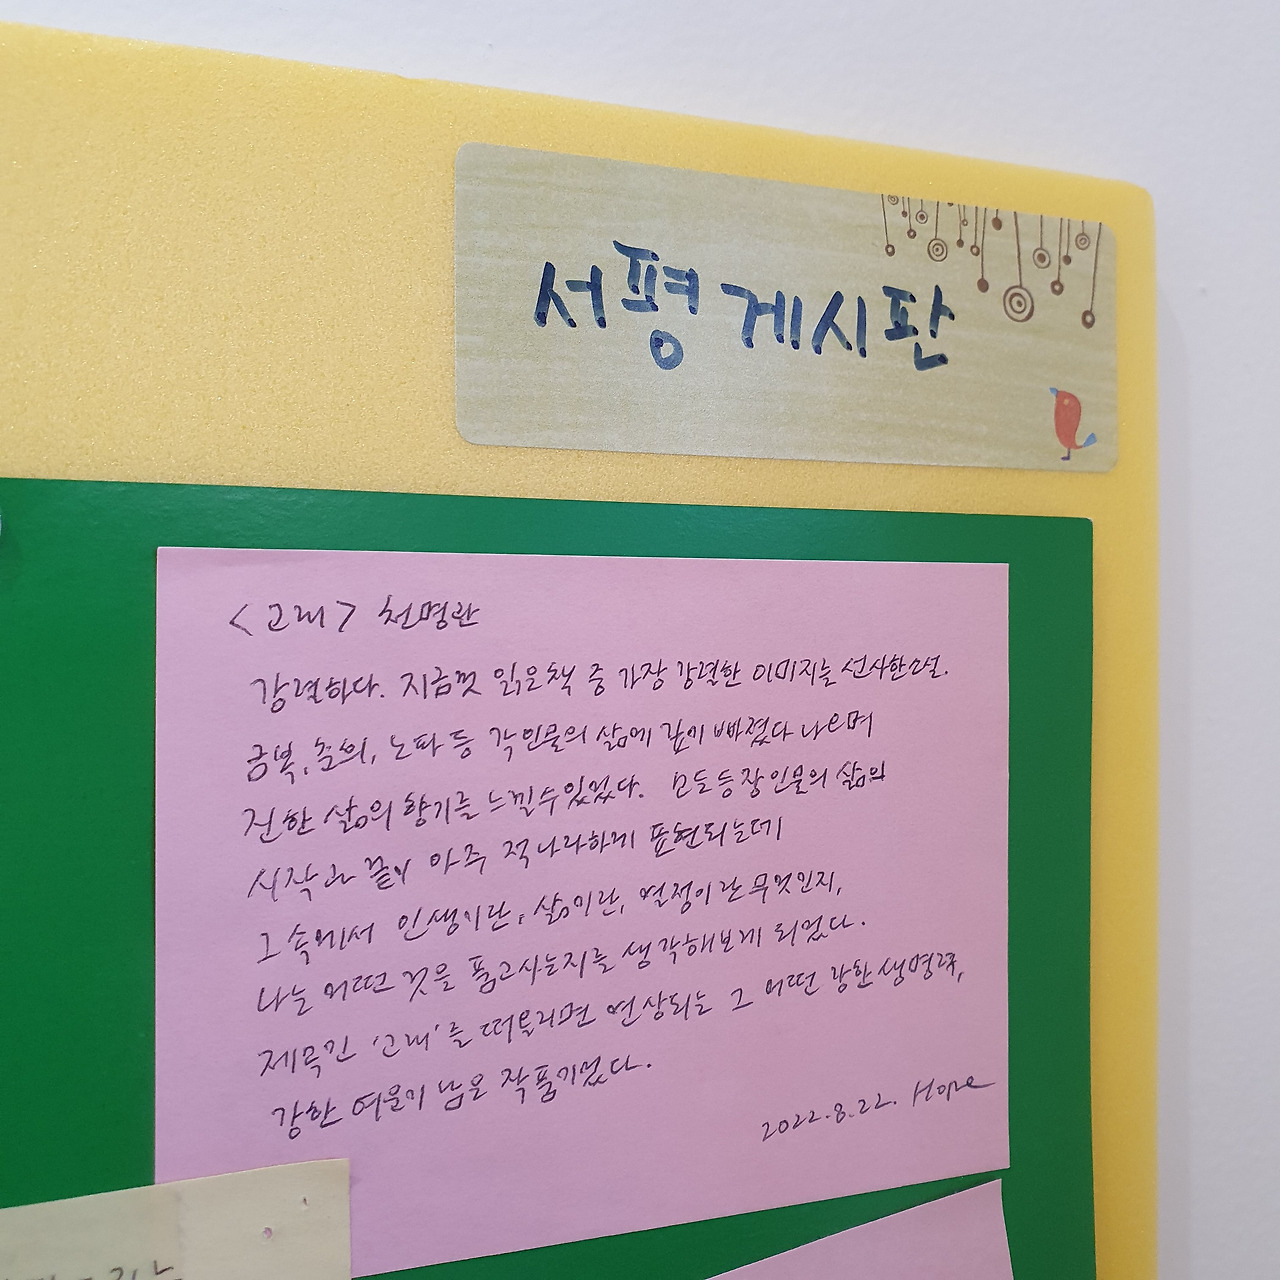 서평 게시판
<고래> 천명관
강렬하다. 지금껏 읽은 책 중 가장 강렬한 이미지를 선사한 소설.
금복, 춘희, 노파 등 각 인물의 삶에 깊이 빠졌다 나오며
진한 삶의 향기를 느낄 수 있었다. 모든 등장인물의 삶의
시작과 끝이 아주 적나라하게 표현되는데
그 속에서 인생이란, 삶이란, 열정이란 무엇인지,
나는 어떤 것을 품고 사는지를 생각해보게 되었다.
제목인 '고래'를 떠올리면 연상되는 그 어떤 강한 생명력,
강한 여운이 남은 작품이었다.
2022.8.22. Hope